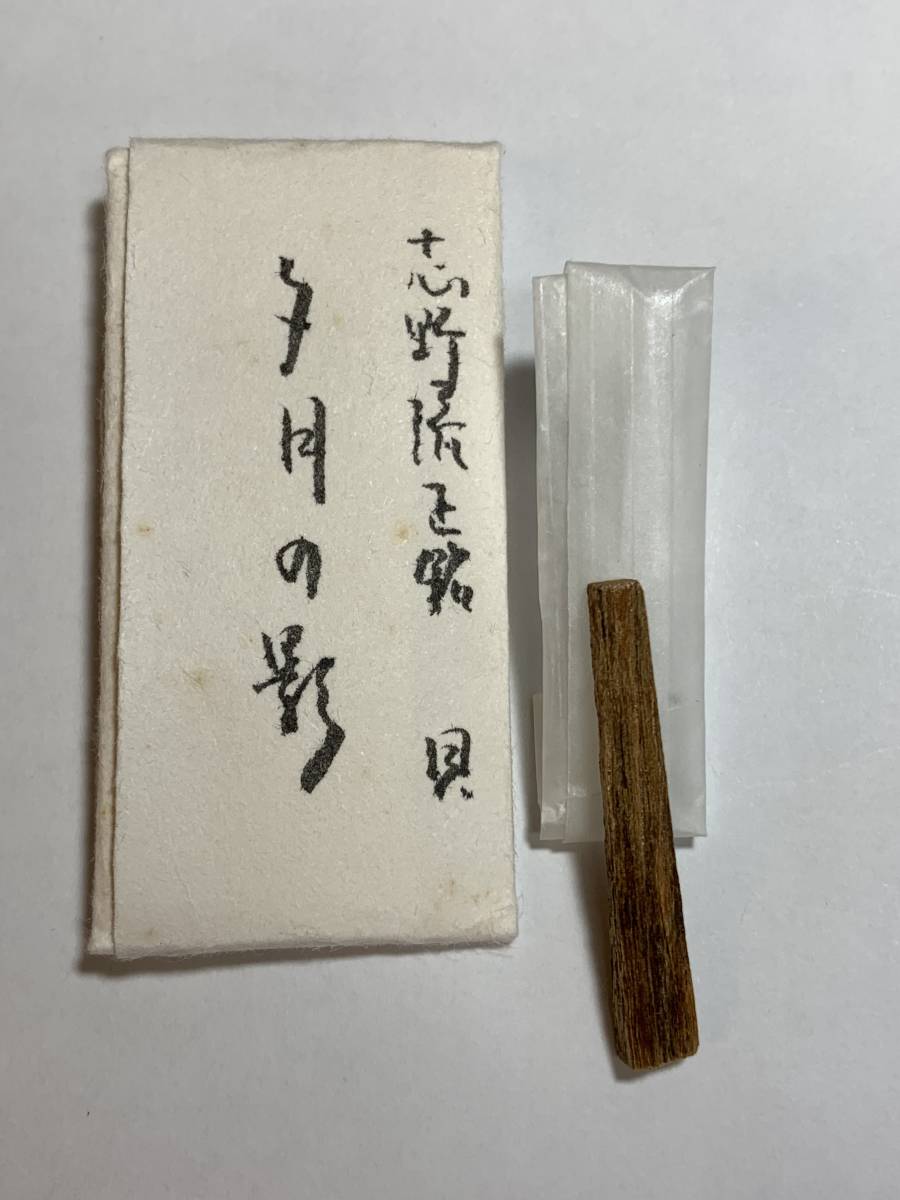 志野流正銘 貝
夕月の影